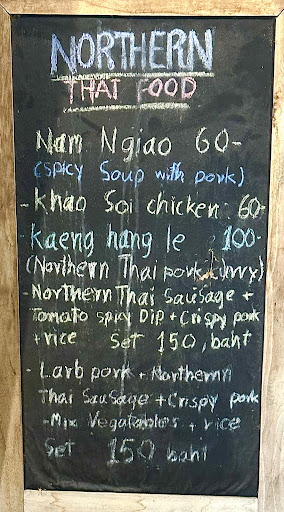 NORTHERN
THAI FOOD
Nam Ngiao 60-
(spicy Soup with pork)
- Khao Soi chicken 60-
- Kaeng hang le 100-
(Northern Thai pork curry)
- Northern Thai Sausage +
Tomato spicy Dip + Crispy pork
+ rice Set 150, baht
- Larb pork + Northern
Thai Sausage + Crispy pork
- Mix Vegatables + rice
Set 150 baht